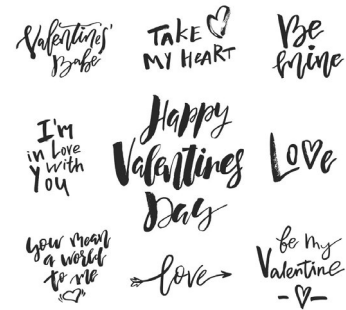 Valentines'
Babe
TAKE
MY HEART
Be
mine
I'm
in Love
with
You
Happy
Valentines
Day
Love
you mean
a world
to me
love
be my
Valentine